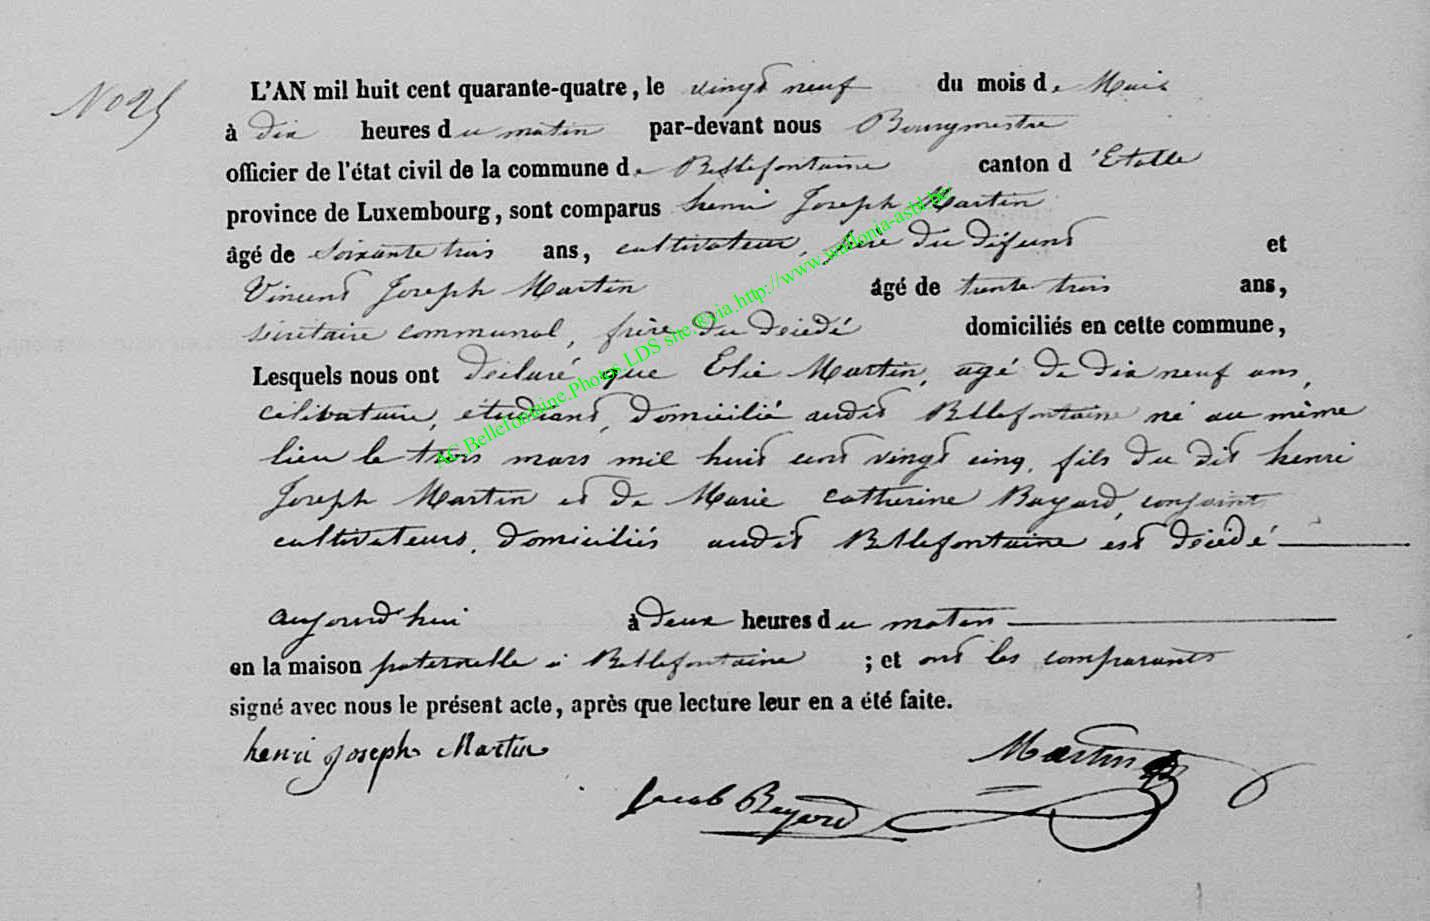 No 25
L'AN mil huit cent quarante-quatre, le vingt neuf du mois de Mai
à dix heures du matin par-devant nous Bourgmestre
officier de l'état civil de la commune de Bellefontaine canton d'Etalle
province de Luxembourg, sont comparus henri Joseph Martin
âgé de soixante trois ans, cultivateur, père du défunt et
Vincent Joseph Martin âgé de trente trois ans,
sécrétaire communal, frère du décédé domiciliés en cette commune,
Lesquels nous ont déclaré que Elie Martin, agé de dix neuf ans,
célibataire, etudiant, domicilié audit Bellefontaine né au même
lieu le trois mars mil huit cent vingt cinq, fils du dit henri
Joseph Martin et de Marie catherine Bayard, conjoints
cultivateurs, domiciliés audit Bellefontaine est décédé
aujourd'hui à deux heures du matin
en la maison paternelle à Bellefontaine ; et ont les comparants
signé avec nous le présent acte, après que lecture leur en a été faite.
henri joseph Martin
Martin
Jacob Bayard
AC.Bellefontaine.Photos.LDS site.®via.http://www.wallonia-asbl.be